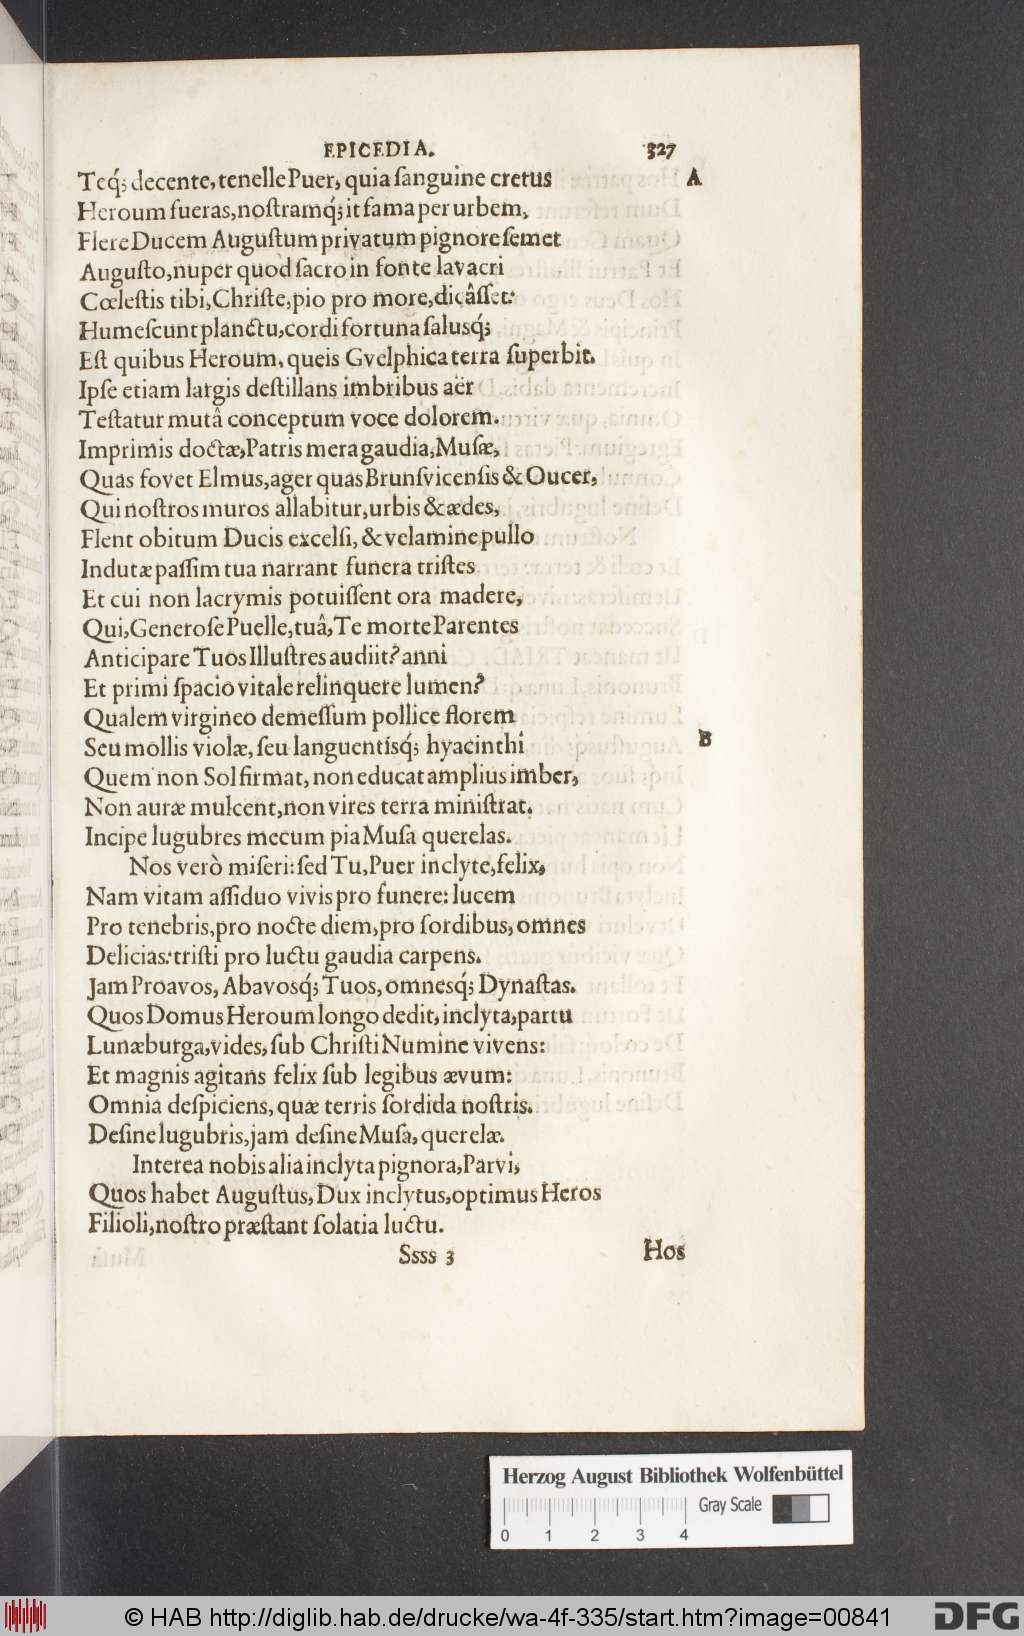 EPICEDIA. 327
Teq́; decente, tenelle Puer, quia ſanguine cretus A
Heroum fueras, noſtramq́; it fama per urbem,
Flere Ducem Auguſtum privatum pignore ſemet
Auguſto, nuper quod ſacro in fonte lavacri
Cœleſtis tibi, Chriſte, pio pro more, dicâſſet:
Humeſcunt planctu, cordi fortuna ſalusq́;
Eſt quibus Heroum, queis Gvelphica terra ſuperbit.
Ipſe etiam largis deſtillans imbribus aër
Teſtatur mutâ conceptum voce dolorem.
Imprimis doctæ, Patris mera gaudia, Muſæ,
Quas fovet Elmus, ager quas Brunſvicenſis & Oucer,
Qui noſtros muros allabitur, urbis & ædes,
Flent obitum Ducis excelſi, & velamine pullo
Indutæ paſſim tua narrant funera triſtes
Et cui non lacrymis potuiſſent ora madere,
Qui, Generoſe Puelle, tuâ, Te morte Parentes
Anticipare Tuos Illuſtres audiit? anni
Et primi ſpacio vitale relinquere lumen?
Qualem virgineo demeſſum pollice florem
Seu mollis violæ, ſeu languentísq́; hyacinthi B
Quem non Sol firmat, non educat amplius imber,
Non auræ mulcent, non vires terra miniſtrat.
Incipe lugubres mecum pia Muſa querelas.
Nos verò miſeri: ſed Tu, Puer inclyte, felix,
Nam vitam aſſiduo vivis pro funere: lucem
Pro tenebris, pro nocte diem, pro ſordibus, omnes
Delicias: triſti pro luctu gaudia carpens.
Jam Proavos, Abavosq́; Tuos, omnesq́; Dynaſtas.
Quos Domus Heroum longo dedit, inclyta, partu
Lunæburga, vides, ſub Chriſti Numine vivens:
Et magnis agitans felix ſub legibus ævum:
Omnia deſpiciens, quæ terris ſordida noſtris.
Deſine lugubris, jam deſine Muſa, querelæ.
Interea nobis alia inclyta pignora, Parvi,
Quos habet Auguſtus, Dux inclytus, optimus Heros
Filioli, noſtro præſtant ſolatia luctu.
Ssss 3 Hos
Herzog August Bibliothek Wolfenbüttel
Gray Scale
0 1 2 3 4
© HAB http://diglib.hab.de/drucke/wa-4f-335/start.htm?image=00841 DFG